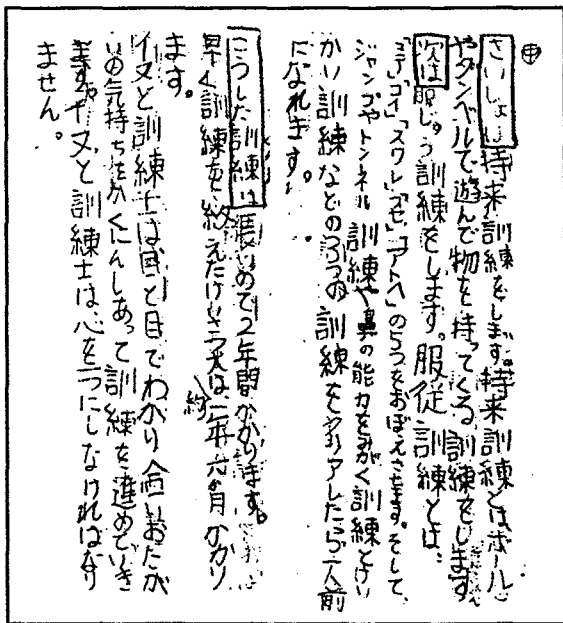 中
さいしょは持来訓練をします。持来訓練とはボール
やダンベルで遊んで物を持ってくる訓練をします
次は服じゅう訓練をします。服従訓練とは、
「コイ」「スワレ」「フセ」「アトヘ」の5つをおぼえさせます。そして、
ジャンプやトンネル訓練や鼻の能力をみがく訓練とけい
かい訓練などの3つの訓練をクリアしたら一人前
になれます。
こうした訓練は長いので2年間かかります。
早く訓練を終えたけいさつ犬は、約一年六か月かかり
ます。
イヌと訓練士は目と目でわかり合いおたが
いの気持ちをかくにんしあって訓練を進めていき
ますイヌと訓練士は、心を一つにしなければなり
ません。